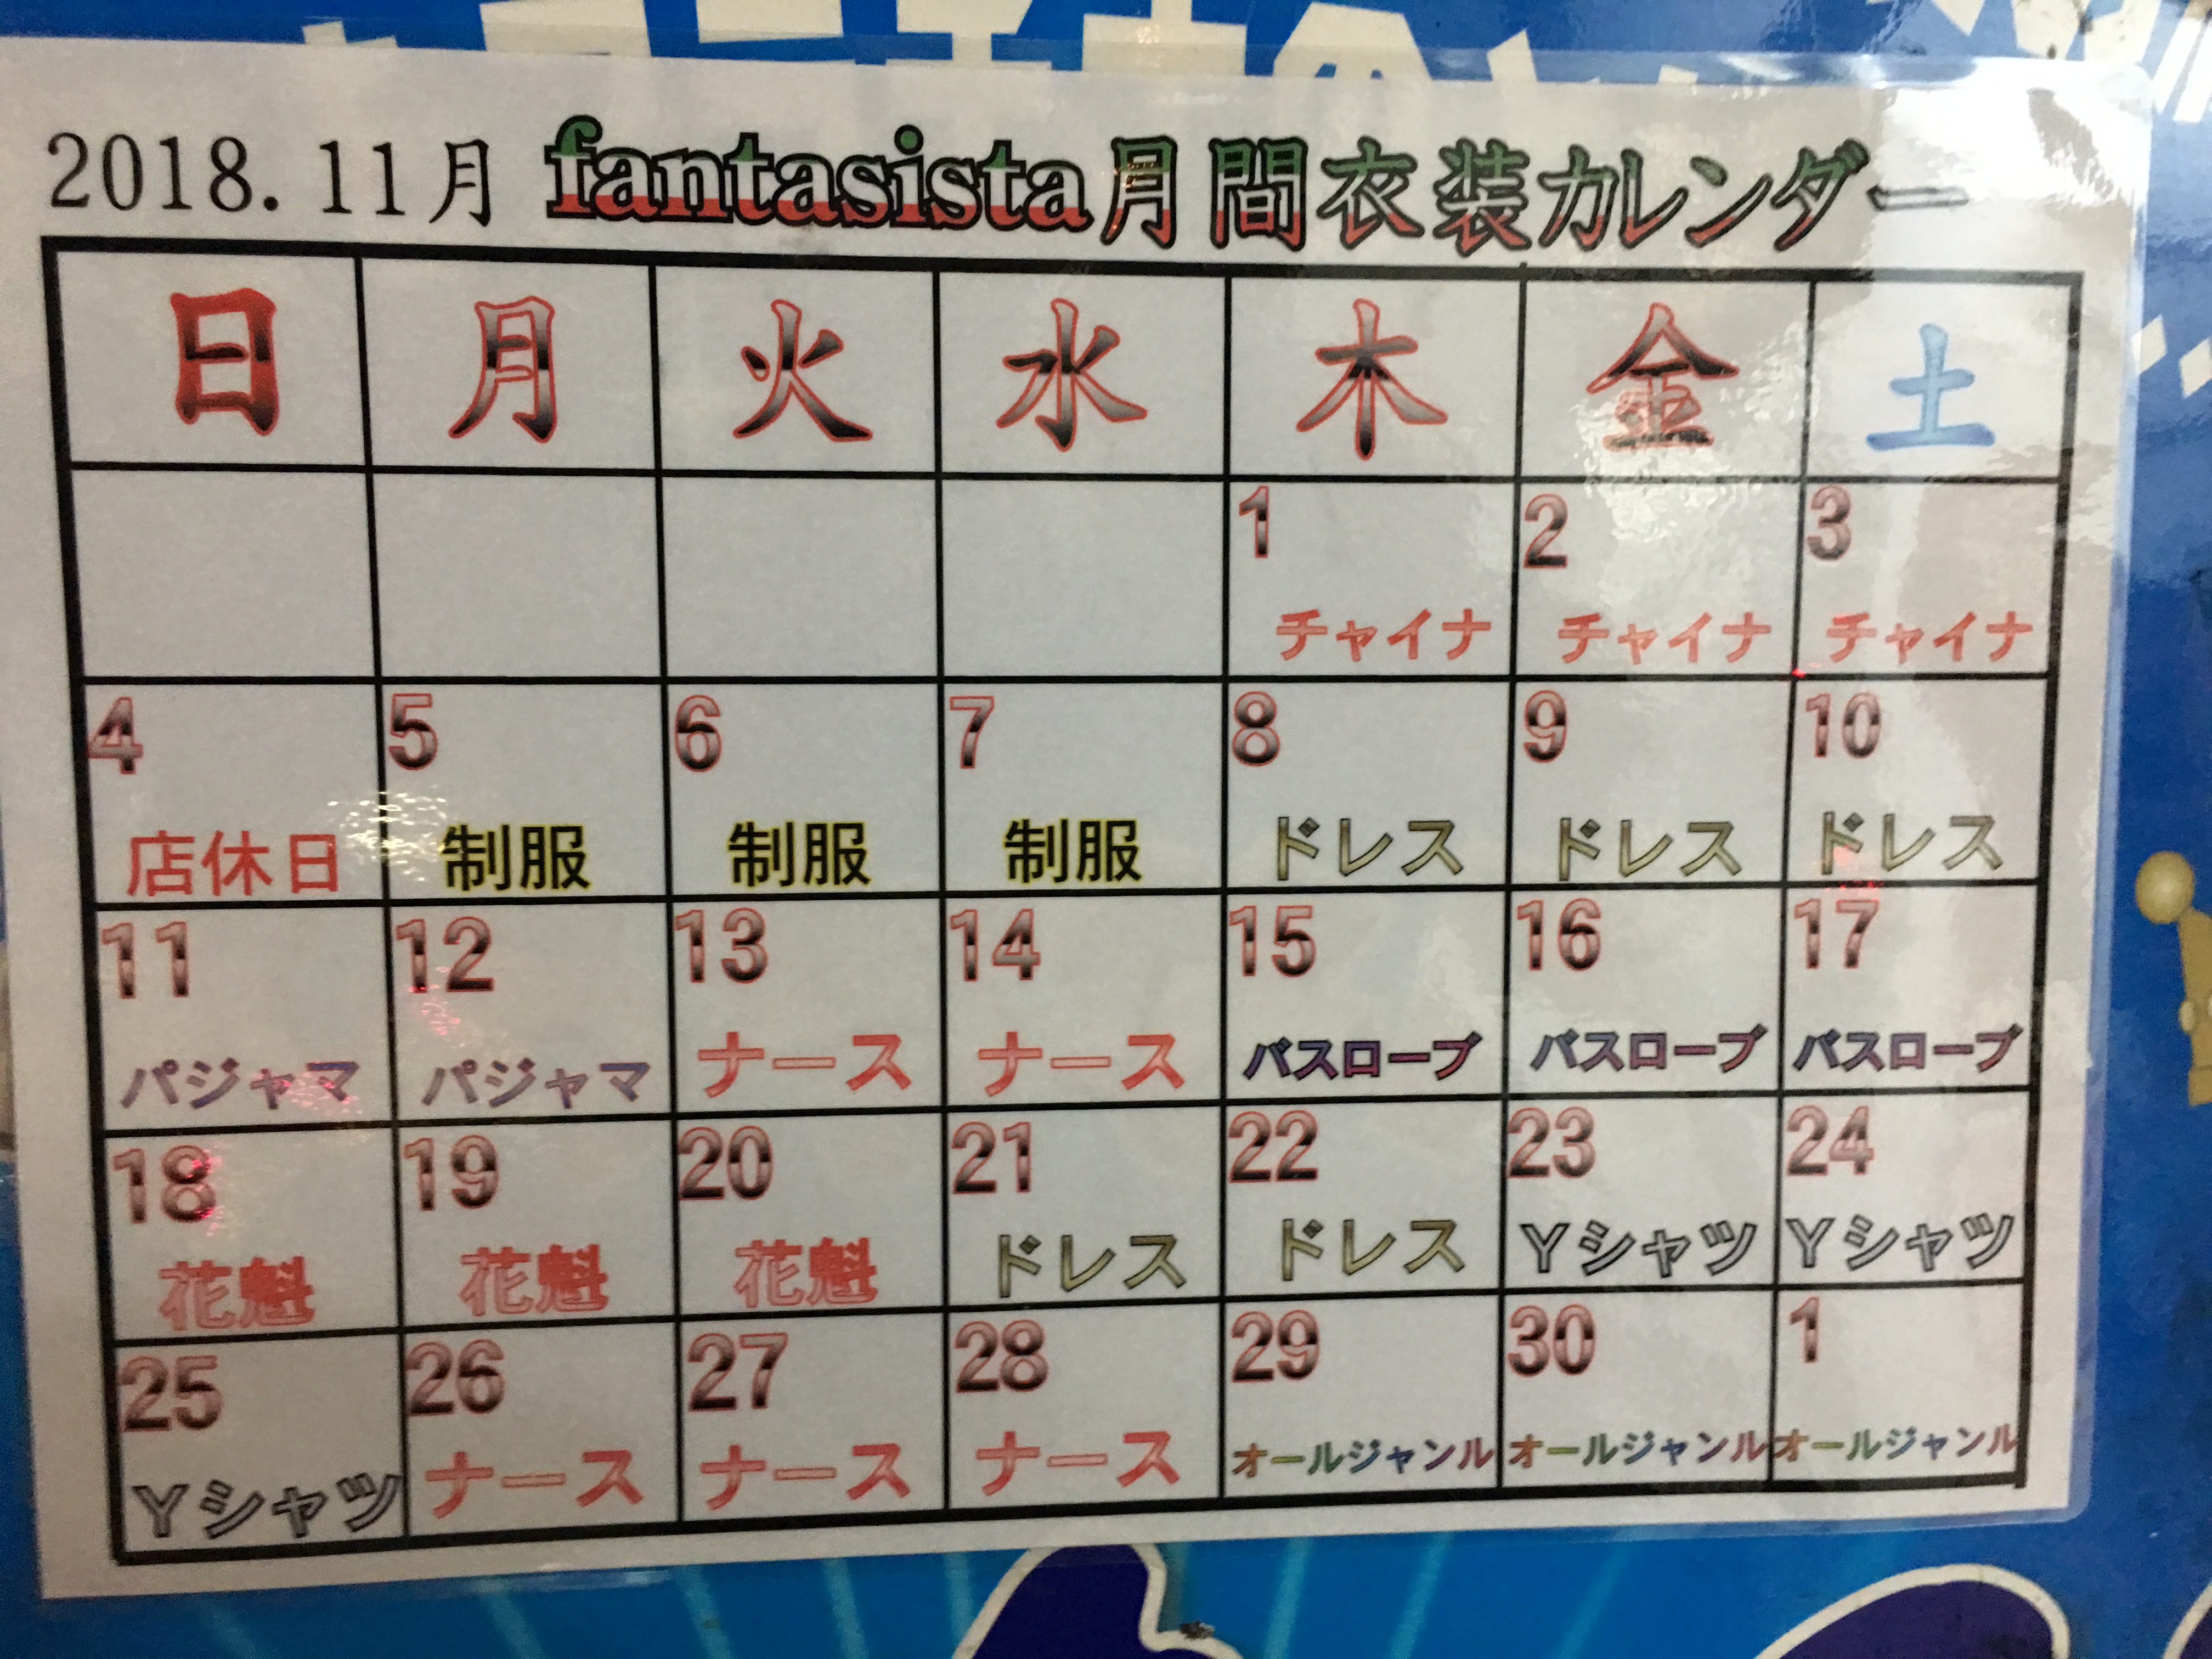 2018.11月 fantasista月間衣装カレンダー
日 月 火 水 木 金 土
1 2 3
チャイナ チャイナ チャイナ
4 5 6 7 8 9 10
店休日 制服 制服 制服 ドレス ドレス ドレス
11 12 13 14 15 16 17
パジャマ パジャマ ナース ナース バスローブ バスローブ バスローブ
18 19 20 21 22 23 24
花魁 花魁 花魁 ドレス ドレス Yシャツ Yシャツ
25 26 27 28 29 30 1
Yシャツ ナース ナース ナース オールジャンル オールジャンル オールジャンル